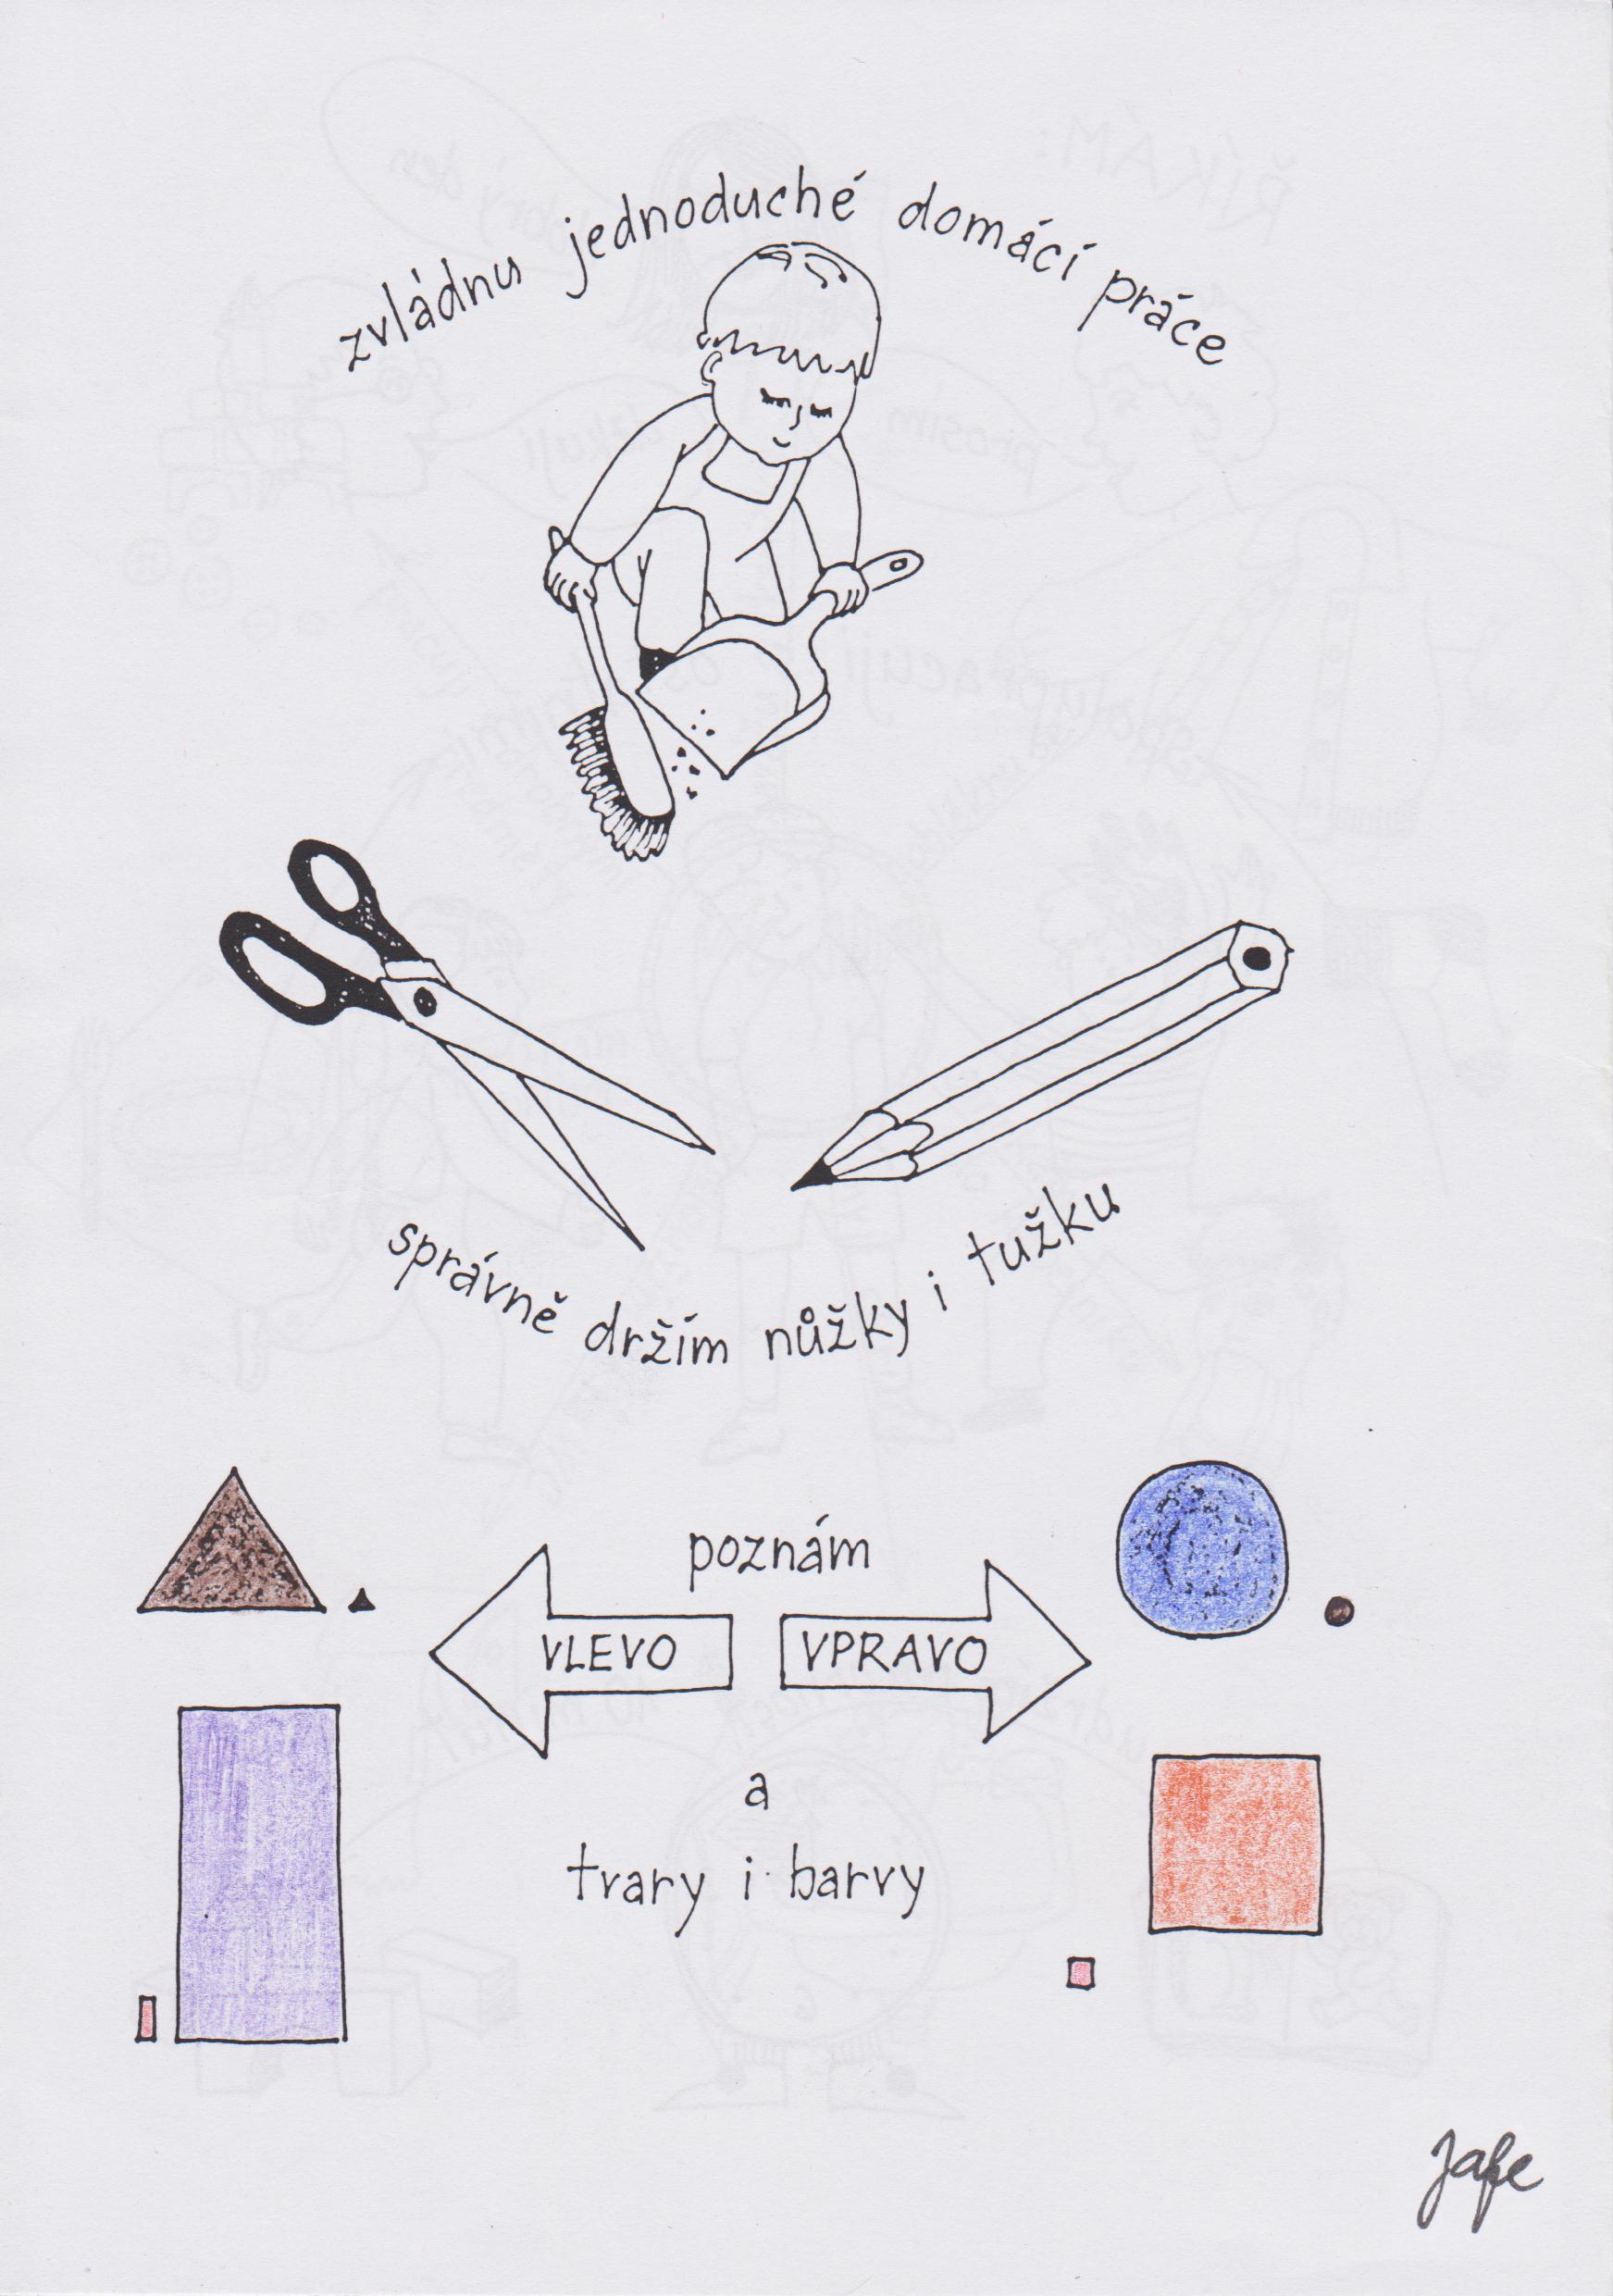 zvládnu jednoduché domácí práce
správně držím nůžky i tužku
poznám
VLEVO VPRAVO
a
tvary i barvy
Jafe